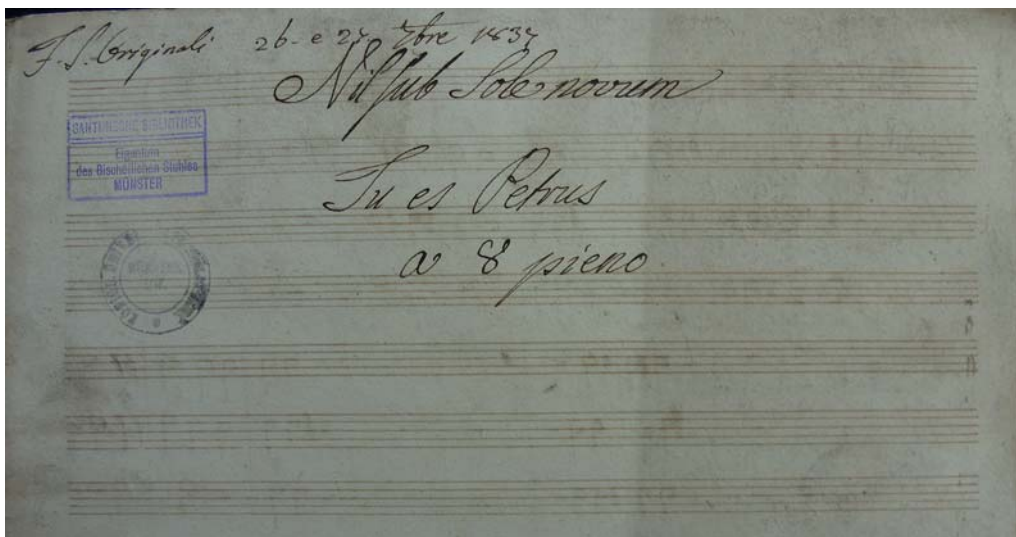 F. S. Originali 26. e 27. 7bre 1837
Nil sub Sole novum
SANTINISCHE BIBLIOTHEK
Eigentum
des Bischöflichen Stuhles
MÜNSTER
Tu es Petrus
a 8 pieno